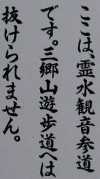 ここは、霊水観音参道
です。三郷山遊歩道へは
抜けられません。